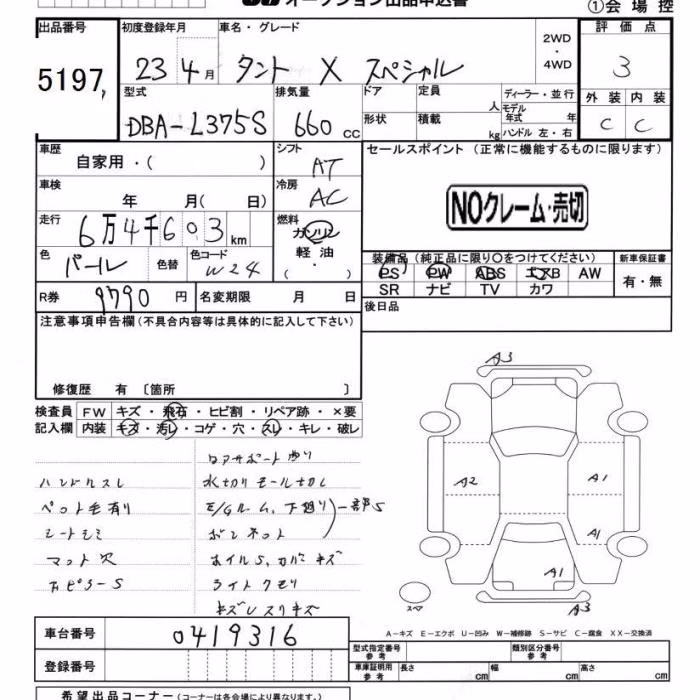 オークション出品申込書
①会場控
出品番号 初度登録年月 車名・グレード 2WD・4WD 評価点
5197 23 4月 タント X スペシャル 3
型式 排気量 ドア 定員 人 ディーラー・並行 外装 内装
DBA-L375S 660cc 形状 積載 kg モデル年式 年 ハンドル 左・右 C C
車歴 自家用・( ) シフト AT セールスポイント(正常に機能するものに限ります)
車検 年 月( 日) 冷房 AC
NOクレーム・売切
走行 6万4千603km 燃料 ガソリン
色 パール 色替 色コード W24 軽油・( )
装備品(純正品に限り○をつけてください) 新車保証書
PS PW ABS エアB AW 有・無
SR ナビ TV カワ
R券 9790円 名変期限 月 日 後日品
注意事項申告欄(不具合内容等は具体的に記入して下さい)
修復歴 有 〔箇所 〕
検査員 FW キズ・飛石・ヒビ割・リペア跡・×要
記入欄 内装 キズ・汚レ・コゲ・穴・スレ・キレ・破レ
ハンドルスレ 水切りモール切れ
ペット毛有り E/Gルーム、下廻り 一部S
シートシミ ボンネット
マット穴 ホイルS、カバーキズ
Bピラー S ライトクモリ
キズレスリキズ
A3
A2 A1
A1
A1
スペア A3
A-キズ E-エクボ U-凹み W-補修跡 S-サビ C-腐食 XX-交換済
車台番号 0419316
型式指定番号 参考 類別区分番号 参考
登録番号
車庫証明用 参考 長さ cm 幅 cm 高さ cm
希望出品コーナー(コーナーは各会場により異なります)